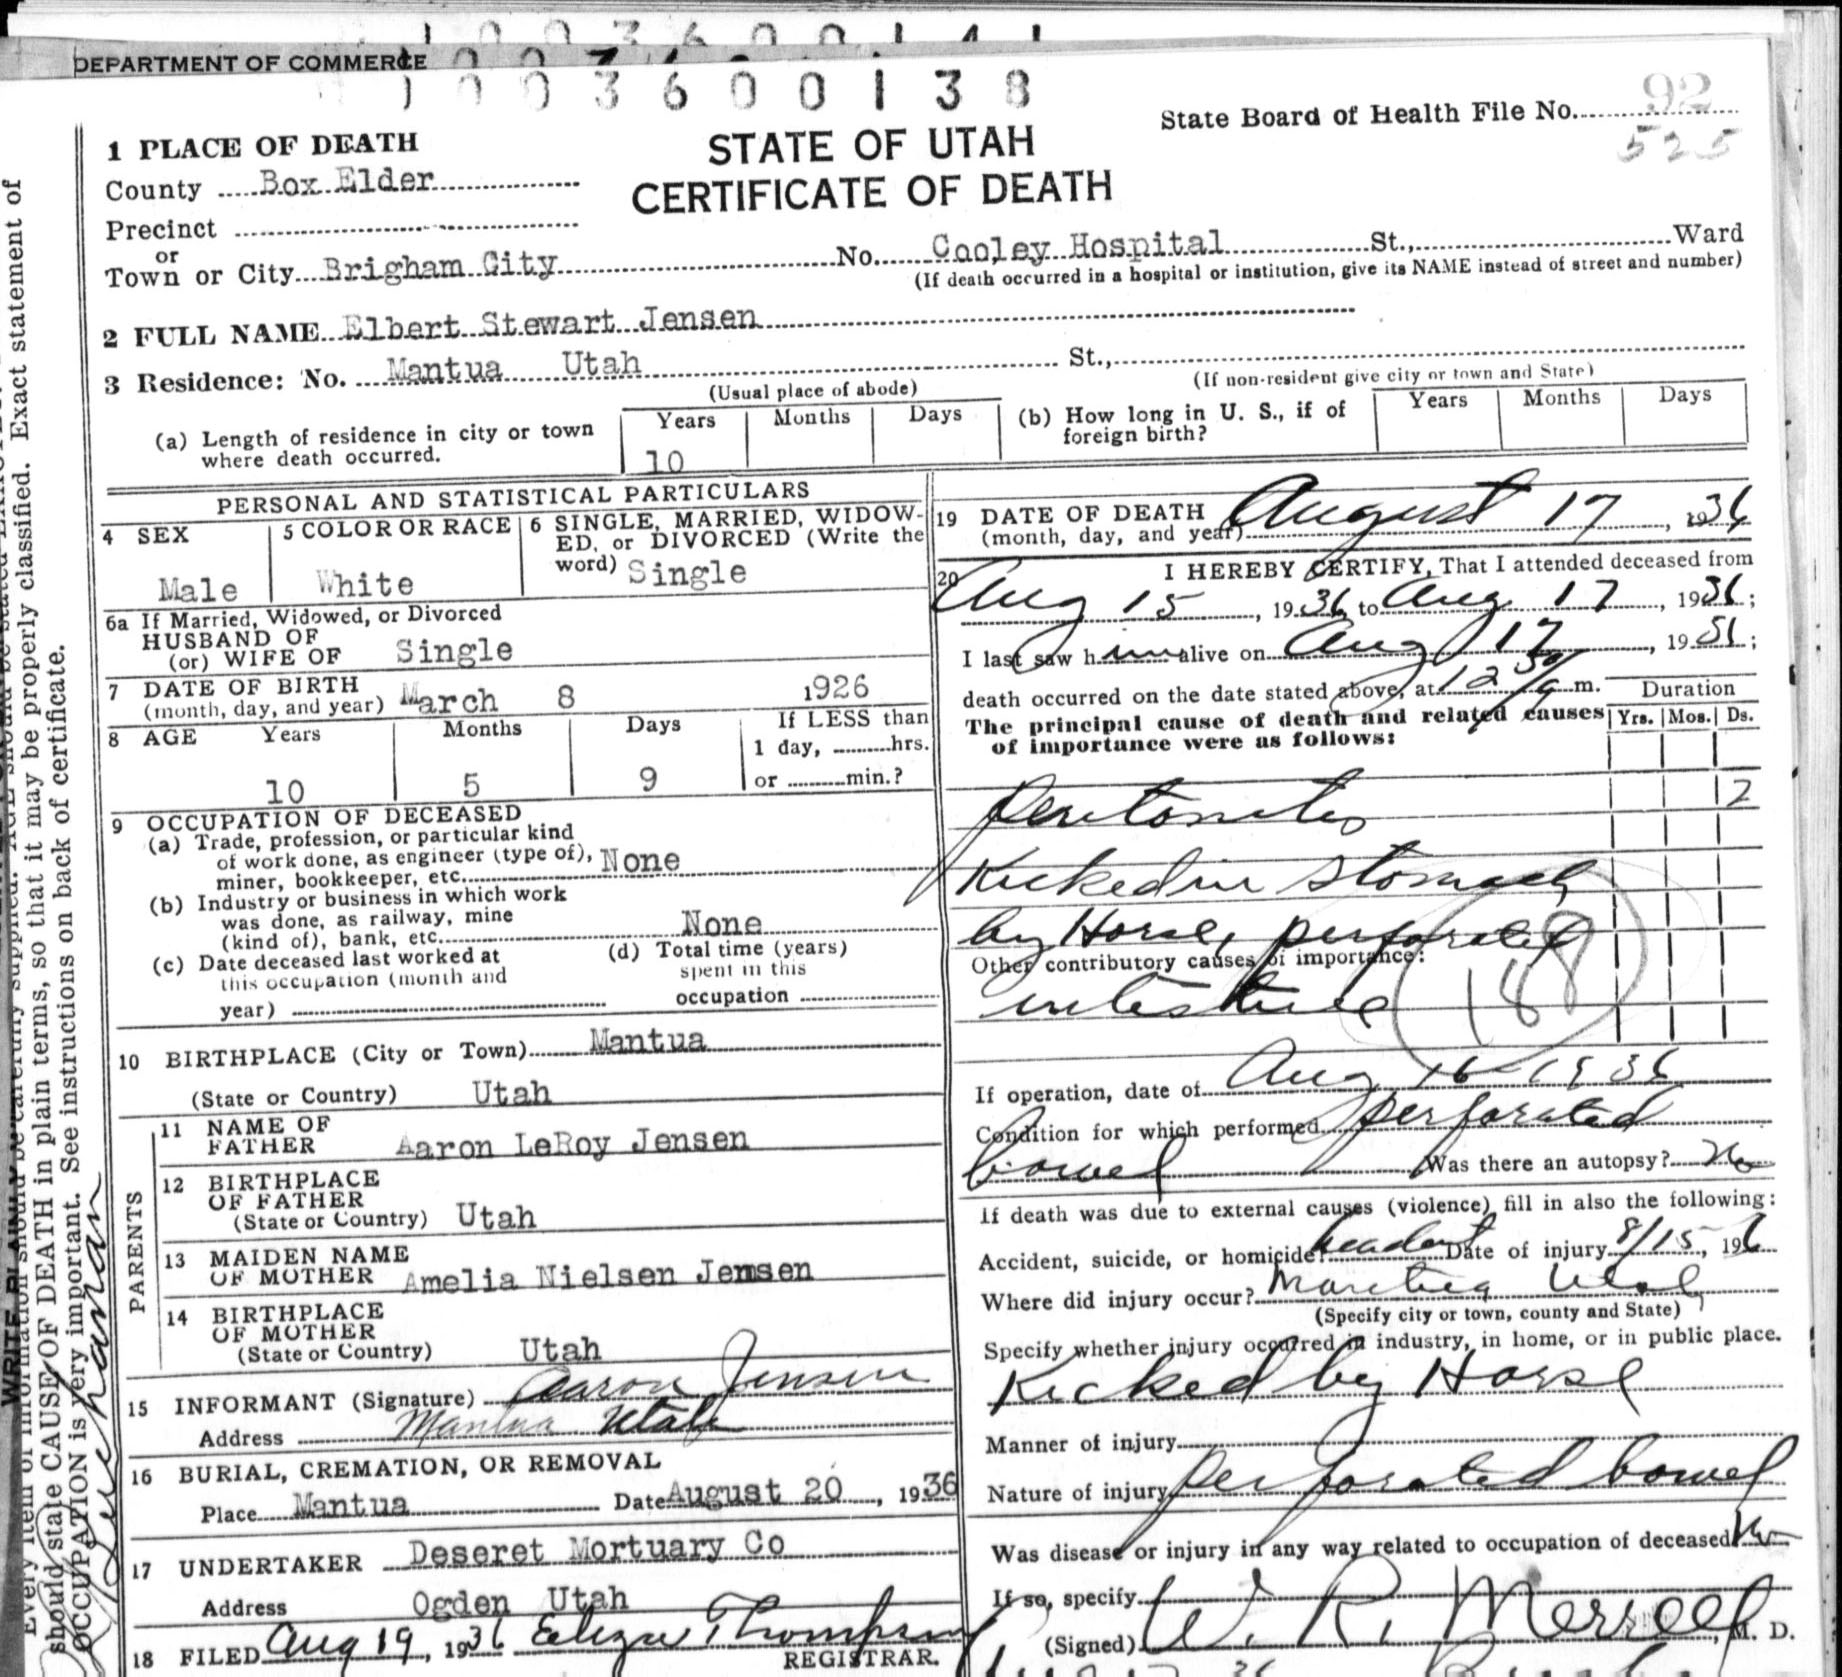 DEPARTMENT OF COMMERCE
1003600138
State Board of Health File No. 92
525
STATE OF UTAH
CERTIFICATE OF DEATH
1 PLACE OF DEATH
County Box Elder
Precinct
or
Town or City Brigham City No. Cooley Hospital St., Ward
(If death occurred in a hospital or institution, give its NAME instead of street and number)
2 FULL NAME Elbert Stewart Jensen
3 Residence: No. Mantua Utah St.,
(Usual place of abode) (If non-resident give city or town and State)
(a) Length of residence in city or town where death occurred. Years 10 Months Days
(b) How long in U. S., if of foreign birth? Years Months Days
PERSONAL AND STATISTICAL PARTICULARS
4 SEX Male
5 COLOR OR RACE White
6 SINGLE, MARRIED, WIDOW-
ED, or DIVORCED (Write the
word) Single
6a If Married, Widowed, or Divorced
HUSBAND OF
(or) WIFE OF Single
7 DATE OF BIRTH
(month, day, and year) March 8 1926
8 AGE Years Months Days If LESS than
1 day, hrs.
10 5 9 or min.?
9 OCCUPATION OF DECEASED
(a) Trade, profession, or particular kind
of work done, as engineer (type of),
miner, bookkeeper, etc. None
(b) Industry or business in which work
was done, as railway, mine
(kind of), bank, etc. None
(c) Date deceased last worked at
this occupation (month and
year)
(d) Total time (years)
spent in this
occupation
10 BIRTHPLACE (City or Town) Mantua
(State or Country) Utah
PARENTS
11 NAME OF
FATHER Aaron LeRoy Jensen
12 BIRTHPLACE
OF FATHER
(State or Country) Utah
13 MAIDEN NAME
OF MOTHER Amelia Nielsen Jensen
14 BIRTHPLACE
OF MOTHER
(State or Country) Utah
15 INFORMANT (Signature) Aaron Jensen
Address Mantua Utah
16 BURIAL, CREMATION, OR REMOVAL
Place Mantua Date August 20, 1936
17 UNDERTAKER Deseret Mortuary Co
Address Ogden Utah
18 FILED Aug 19, 1936 Eliza Thompson
REGISTRAR.
19 DATE OF DEATH
(month, day, and year) August 17, 1936
20 I HEREBY CERTIFY, That I attended deceased from
Aug 15, 1936, to Aug 17, 1936;
I last saw him alive on Aug 17, 1936;
death occurred on the date stated above, at 12 30/a m.
The principal cause of death and related causes
of importance were as follows:
Duration
Yrs. Mos. Ds.
Peritonitis 2
Kicked in stomach
by Horse, perforated
Other contributory causes of importance:
intestine
188
If operation, date of Aug 16 - 1936
Condition for which performed perforated
bowel Was there an autopsy? No
If death was due to external causes (violence) fill in also the following:
Accident, suicide, or homicide? Accident Date of injury 8/15, 196
Where did injury occur? Mantua Utah
(Specify city or town, county and State)
Specify whether injury occurred in industry, in home, or in public place.
Kicked by Horse
Manner of injury
Nature of injury perforated bowel
Was disease or injury in any way related to occupation of deceased? No
If so, specify
(Signed) W. R. Merrell, M. D.
Every item of information should be carefully supplied.
should state CAUSE OF DEATH in plain terms, so that it may be properly classified. Exact statement of
OCCUPATION is very important. See instructions on back of certificate.